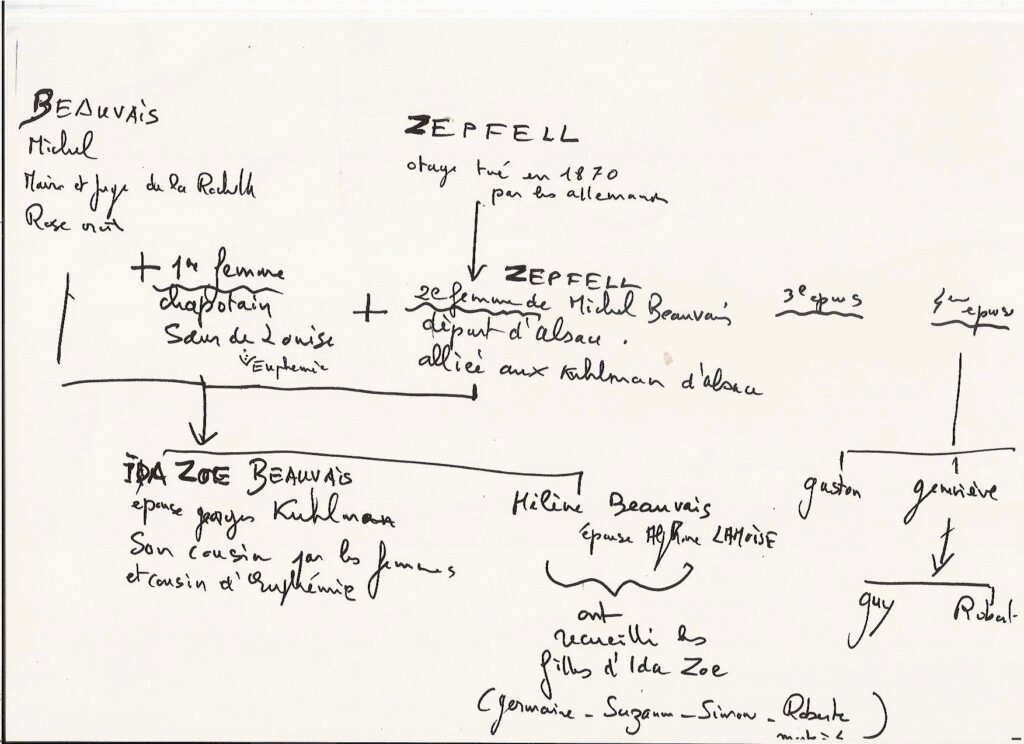 BEAUVAIS
Michel
Maire et juge de la Rochelle
Rose
+ 1ère femme
chapotain
Sœur de Louise
Euphemie
ZEPFELL
otage tué en 1870
par les allemands
ZEPFELL
+ 2e femme de Michel Beauvais
départ d'alsace.
alliée aux Kuhlman d'alsace
3e epous
epouse
IDA ZOE BEAUVAIS
epouse georges Kuhlman
Son cousin par les femmes
et cousin d'Euphémie
Hélène Beauvais
épouse Alphonse LAMOISE
ont
recueilli les
filles d'Ida Zoe
(germaine - Suzanne - Simone - Roberte
)
gaston
geneviève
guy
Robert